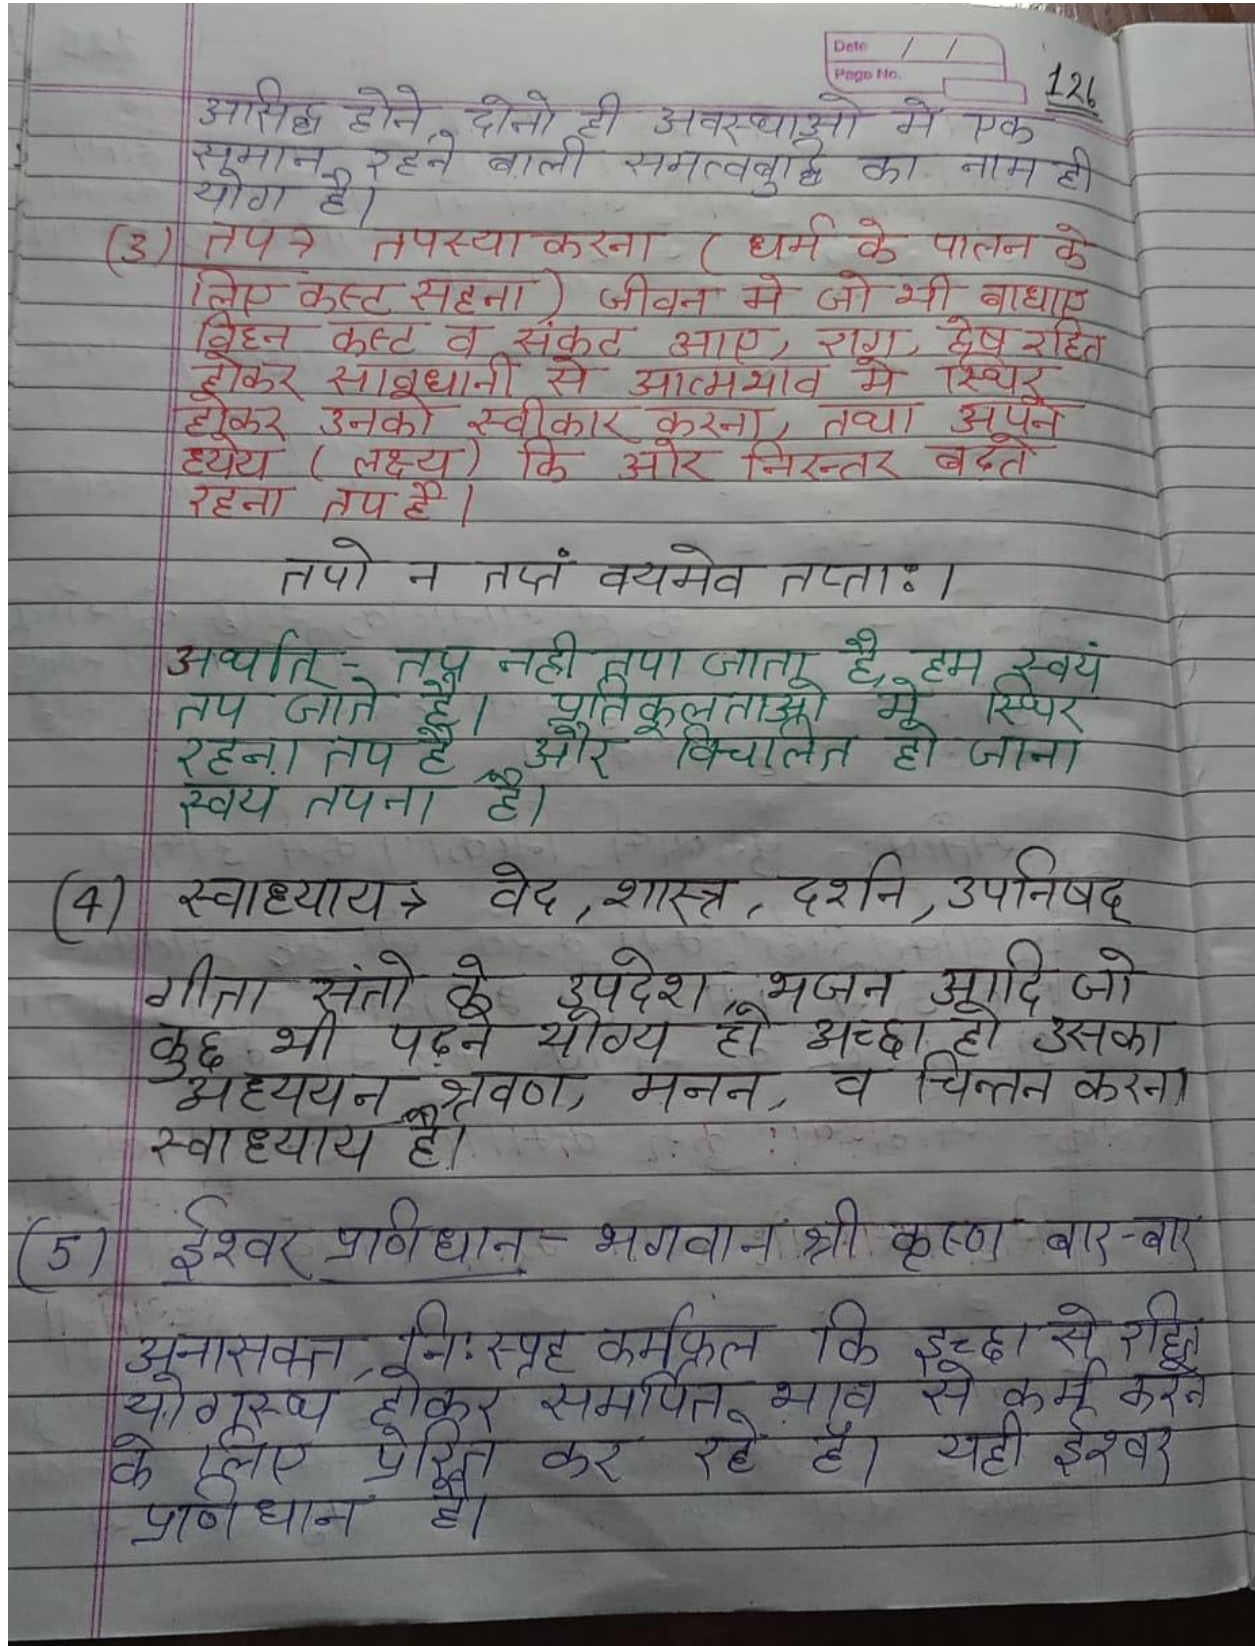 Date / /
Page No.
126
असिद्ध होने, दोनो ही अवस्थाओ मे एक
समान रहने बाली समत्वबुद्धि का नाम ही
योग है।
(3) तप→ तपस्या करना ( धर्म के पालन के
लिए कस्ट सहना) जीवन मे जो भी बाधाए
विघ्न कस्ट व संकट आए, राग, द्वेष रहित
होकर सावधानी से आत्मभाव मे स्थिर
होकर उनको स्वीकार करना, तथा अपने
ध्येय ( लक्ष्य) कि और निरन्तर बढते
रहना तप है।
तपो न तप्तं वयमेव तप्ता:।
अर्थात- तप नही तपा जाता है, हम स्वयं
तप जाते है। प्रतिकूलताओ मे स्थिर
रहना तप है, और विचलित हो जाना
स्वय तपना है।
(4) स्वाध्याय→ वेद, शास्त्र, दर्शन, उपनिषद्
गीता संतो के उपदेश, भजन आदि जो
कुछ भी पढ़ने योग्य हो अच्छा हो उसका
अध्ययन, श्रवण, मनन, व चिन्तन करना
स्वाध्याय है।
(5) ईश्वर प्राणिधान- भगवान श्री कृष्ण बार-बार
अनासक्त, नि:स्पृह कर्मफल कि इच्छा से रहित
योगस्थ होकर समर्पित भाव से कर्म करने
के लिए प्रेरित कर रहे है। यही ईश्वर
प्राणिधान है।